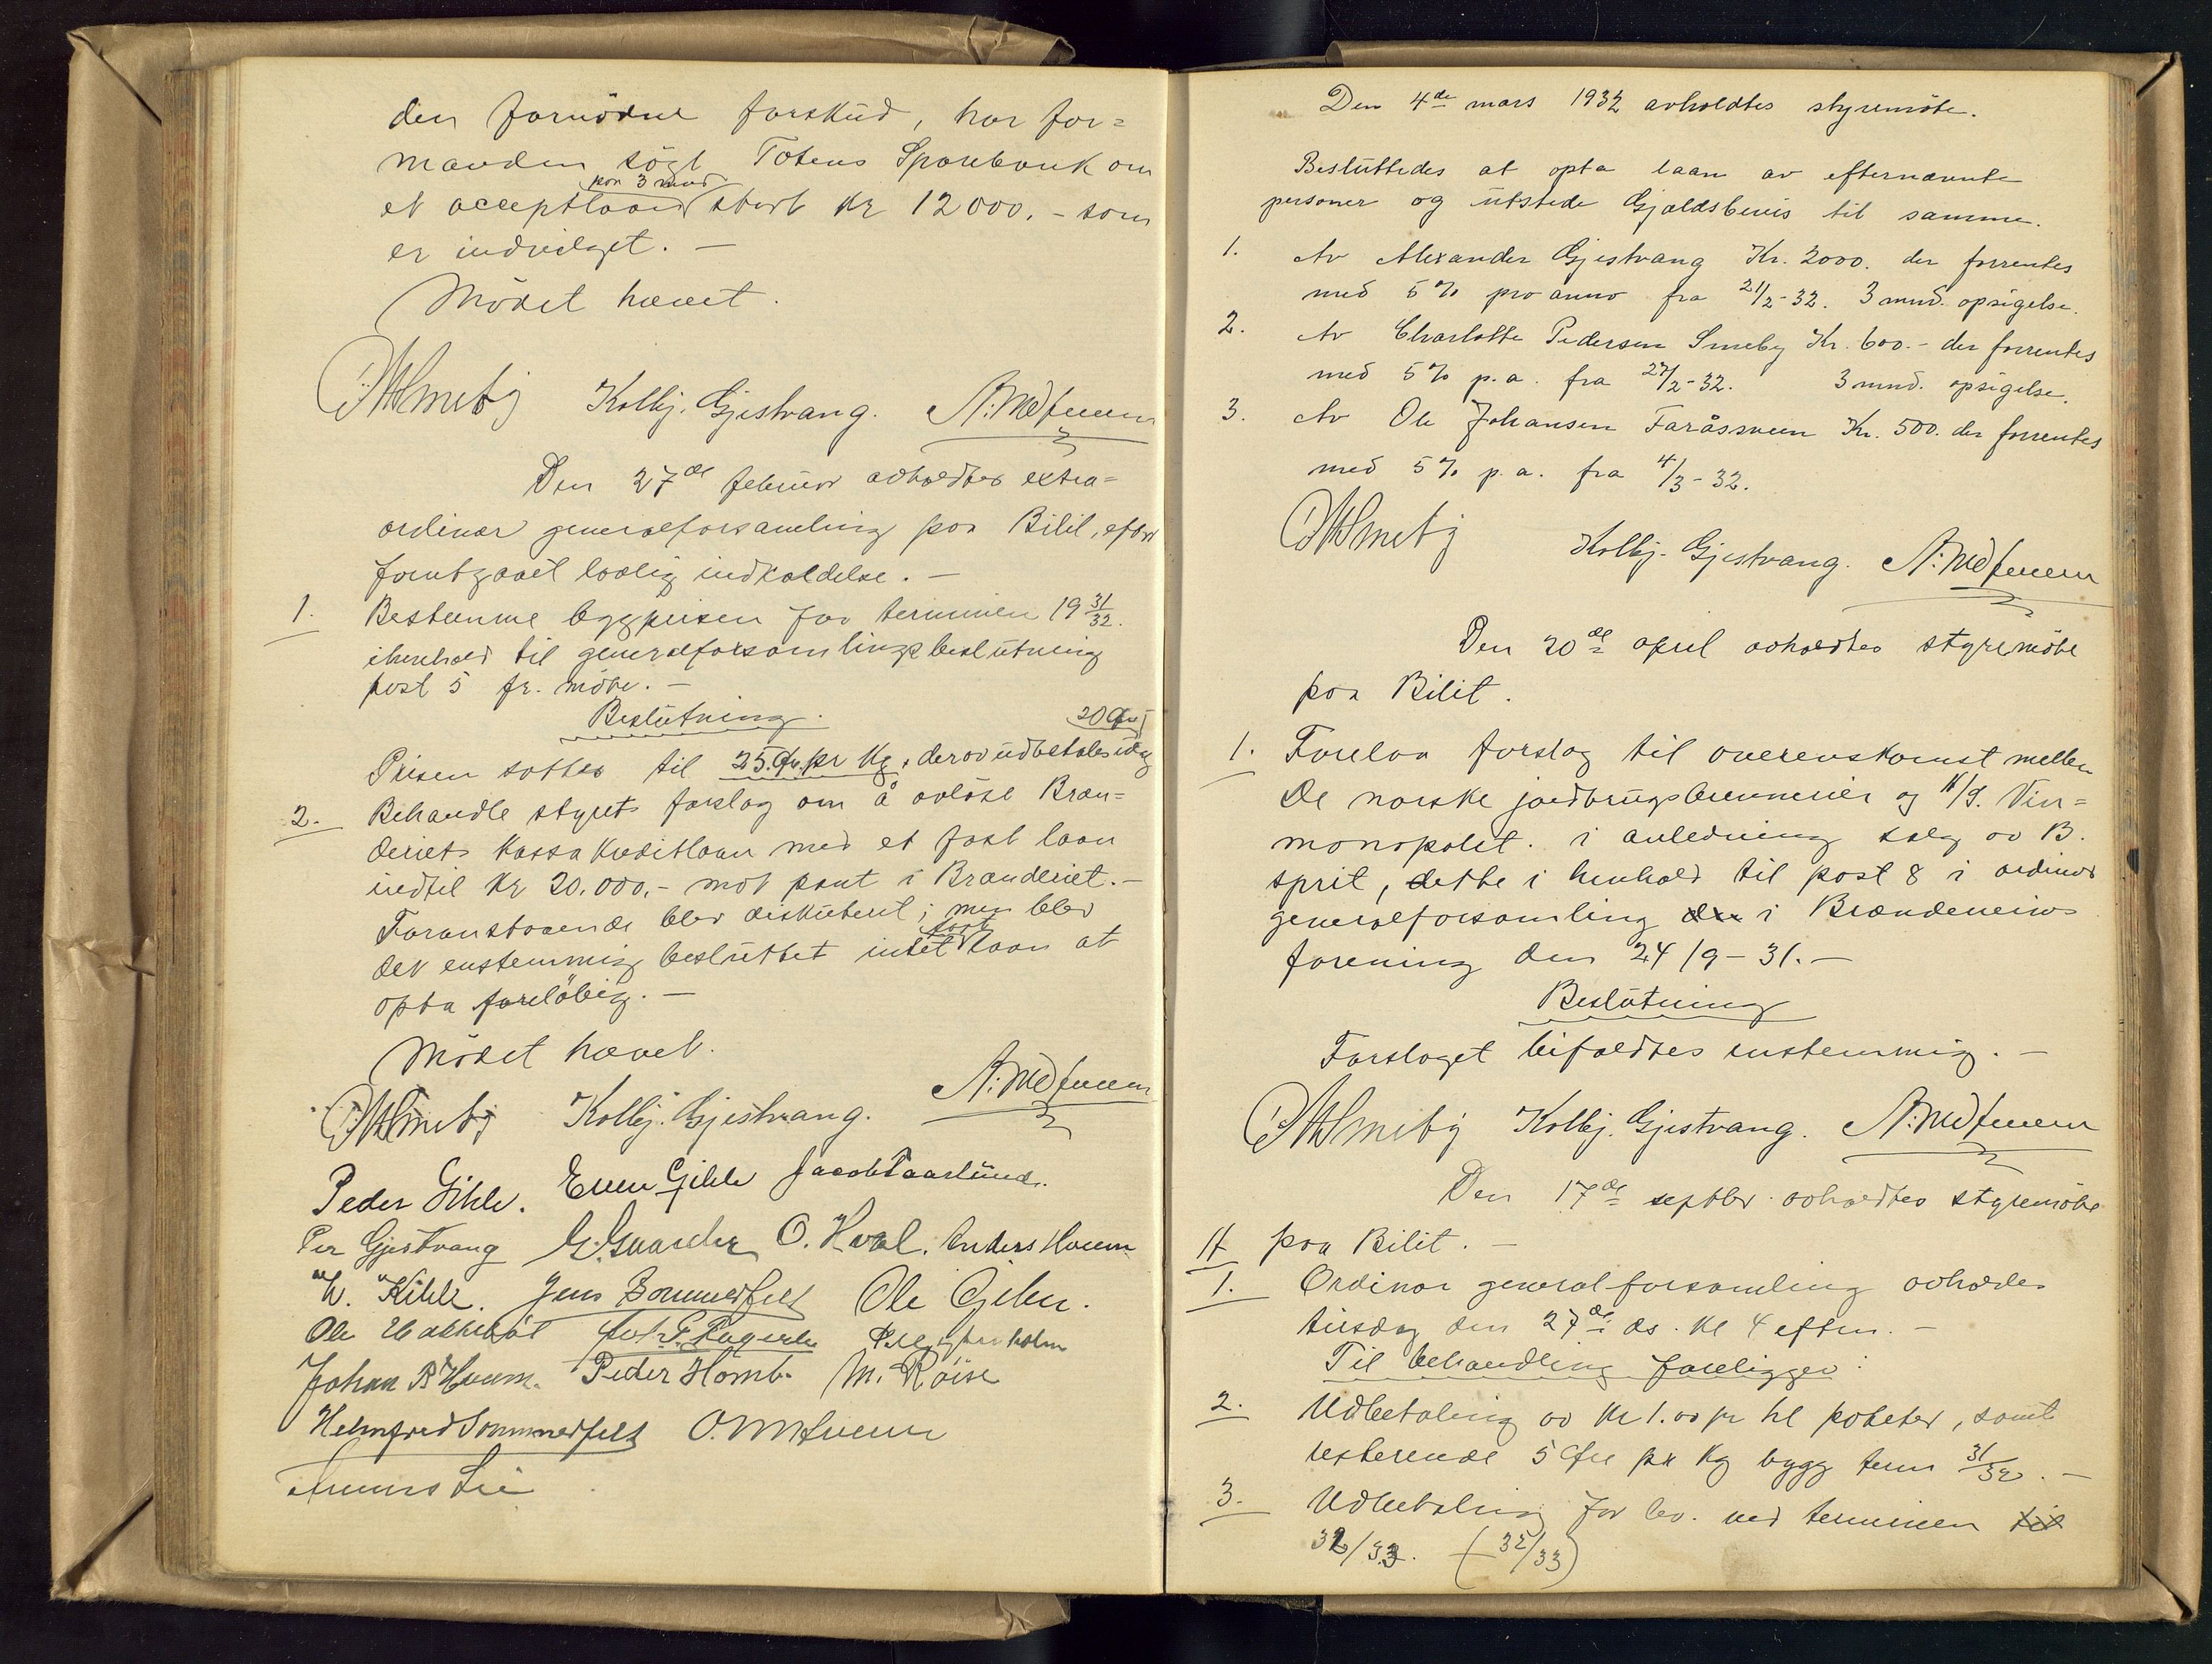 den fornödne forskud, har for=
manden sögt Totens Sparebank om
paa 3 mnd
et acceptlaan stort kr 12000.- som
er indvilget. -
Mödet hævet.
Smeby Kolbj. Gjestvang.
Den 27de februar avholdtes extra=
ordinær generalforsamling paa Bilit, efter
forutgaaet lovlig indkaldelse. -
1. Bestemme byggprisen for terminen 19 31/32.
ihenhold til generalforsamlingsbeslutning
post 5 fr. möte. -
Beslutning.
20 Øre
Prisen sattes til 25. Øre. pr Kg, derav udbetales idag
2. Behandle styrets forslag om å avlöse Bræn=
deriets Kassakreditlaan med et fast laan
indtil kr 20.000,- mot pant i Brænderiet. -
Foranstaaende blev diskuteret; men blev
fast
det enstemmig besluttet intet laan at
opta foreløbig. -
Mödet hævet.
Smeby Kolbj. Gjestvang.
Peder Gihle. Even Gihle Jacob Paarlund.
Per Gjestvang G. Gaarder O. Hval. Anders Huem
Kihle. Jens Sommerfelt Ole Gihle.
Ole
Johan Huem. Peder Homb. M. Röise
Helmfred Sommerfelt
Lie
Den 4de mars 1932 avholdtes styremöte.
Besluttedes at opta laan av efternævnte
personer og utstede Gjældsbevis til samme.
1. Av Alexander Gjestvang Kr. 2000. der forrentes
med 5% pro anno fra 21/2-32. 3 mnd. opsigelse.
2. Av Charlotte Pedersen Smeby Kr. 600.- der forrentes
med 5% p.a. fra 27/2-32. 3 mnd. opsigelse.
3. Av Ole Johansen Faråsveen Kr. 500. der forrentes
med 5% p.a. fra 4/3-32.
Smeby Kolbj. Gjestvang.
Den 20de april avholdtes styremöte
paa Bilit.
1. Forelaa forslag til overenskomst mellem
De norske jordbrugsbrennerier og A/S. Vin=
monopolet. i anledning salg av B.
sprit, dette i henhold til post 8 i ordinær
generalforsamling den i Brænderiers
forening den 24/9-31. -
Beslutning
Forslaget bifaldtes enstemmig. -
Smeby Kolbj. Gjestvang.
Den 17de septbr. avholdtes styremöte
paa Bilit. -
1. Ordinær generalforsamling avholdes
tirsdag den 27de ds. kl 4 efterm. -
Til behandling foreligger:
2. Udbetaling av kr 1.00 pr hl poteter, samt
resterende 5 Øre pr Kg bygg term 31/32. -
3. Udbetaling for lev. ved terminen til
32/33. (32/33)